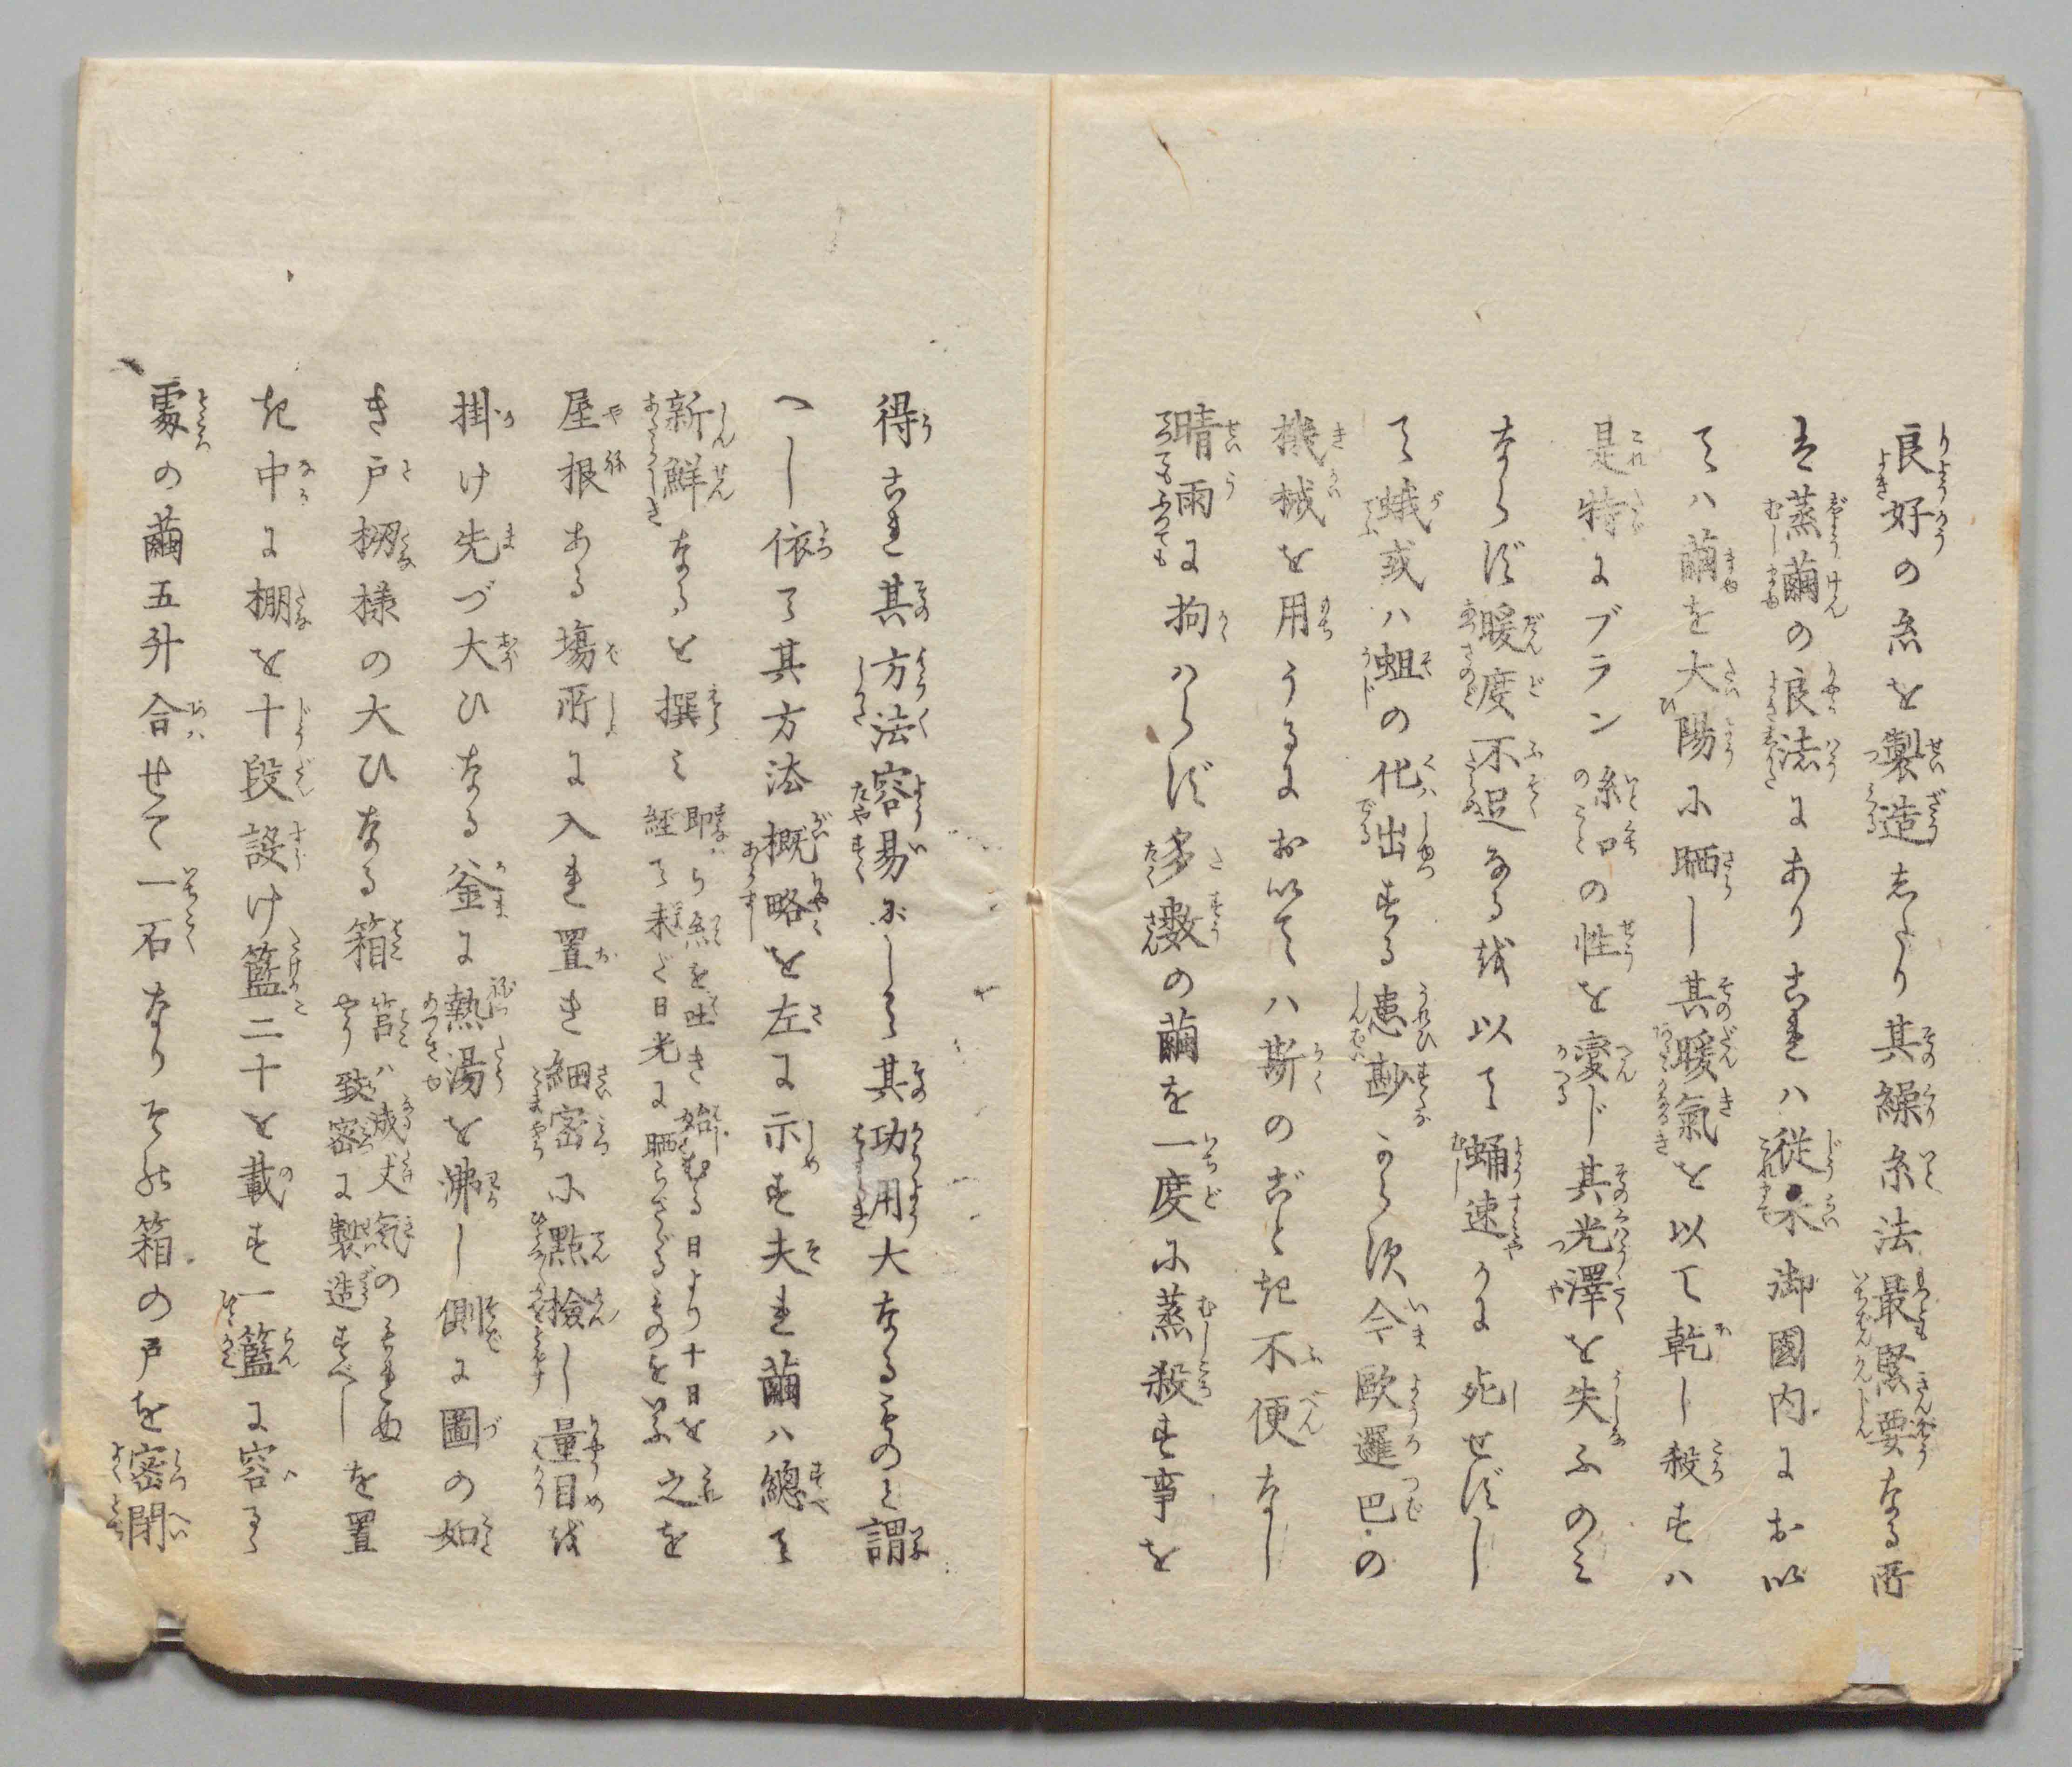 良好の糸を製造したり其繰糸法最緊要なる所
は蒸繭の良法にありこれハ從来御國内におい
てハ繭を大陽に晒し其暖氣を以て乾し殺すハ
是特にブラン糸口のことの性を変じ其光澤を失ふのミ
ならず暖度不足なるを以て蛹速かに死せずし
て蛾或ハ蛆の化出する患尠からず今歐邏巴の
機械を用うるにおいてハ斯のごとき不便なし
晴雨に拘ハらず多數の繭を一度に蒸殺す事を
得これ其方法容易にして其功用大なるものと謂
へし依て其方法概略を左に示す夫れ繭ハ總て
新鮮なるを撰ミ即ち糸を吐き始むる日より十日を経て未だ日光に晒らさゞるものをいふ之を
屋根ある場所に入れ置き細密に點檢し量目を
掛け先づ大ひなる釜に熱湯を沸し側に圖の如
き戸棚様の大ひなる箱筥ハ成丈氣のもれぬやう致密に製造すべしを置
き中に棚を十段設け籃二十を載す一籃に容る
處の繭五升合せて一石なりその箱の戸を密閉